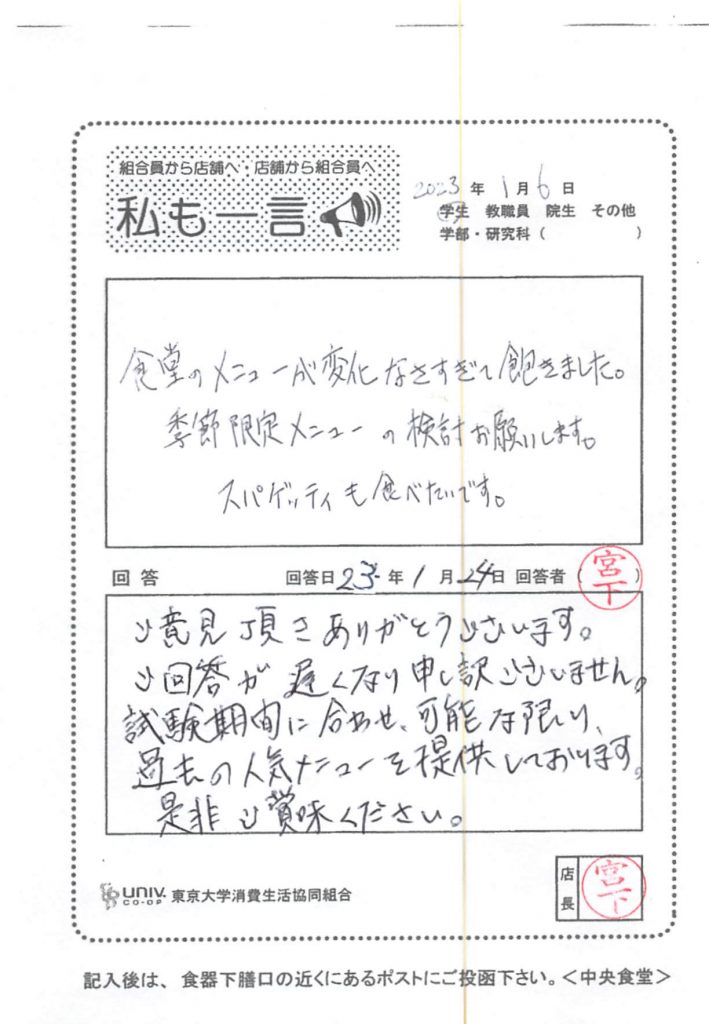 組合員から店舗へ・店舗から組合員へ
私も一言
2023年1月6日
学生 教職員 院生 その他
学部・研究科( )
食堂のメニューが変化なさすぎて飽きました。
季節限定メニューの検討お願いします。
スパゲッティも食べたいです。
回答 回答日23年1月24日 回答者(宮下)
ご意見頂きありがとうございます。
ご回答が遅くなり申し訳ございません。
試験期間に合わせ、可能な限り、
過去の人気メニューを提供しております。
是非ご賞味ください。
UNIV. CO-OP 東京大学消費生活協同組合
店長 宮下
記入後は、食器下膳口の近くにあるポストにご投函下さい。<中央食堂>